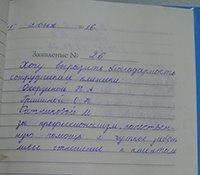 1" июня 16
Заявление № 26
Хочу выразить благодарность
сотрудникам клиники
Охориной Н. А
Гришиной О. В.
Ситниковой В
за профессионализм, качествен-
ную помощь, чуткое, забот
ливое отношение к клиентам